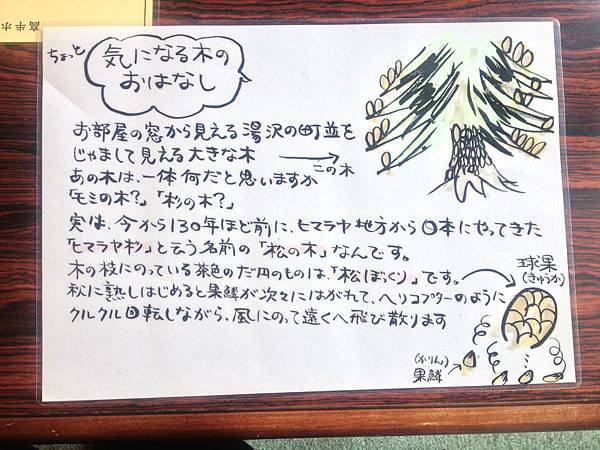 嘉半ホ
ちょっと
気になる木の
おはなし
お部屋の窓から見える湯沢の町並を
じゃまして見える大きな木
この木
あの木は、一体何だと思いますか
「モミの木?」「杉の木?」
実は、今から130年ほど前に、ヒマラヤ地方から日本にやってきた
「ヒマラヤ杉」と云う名前の「松の木」なんです。
木の枝にのっている茶色のだ円のものは、「松ぼっくり」です。
球果
(きゅうか)
秋に熟しはじめると果鱗が次々にはがれて、ヘリコプターのように
クルクル回転しながら、風にのって遠くへ飛び散ります
(かりん)
果鱗